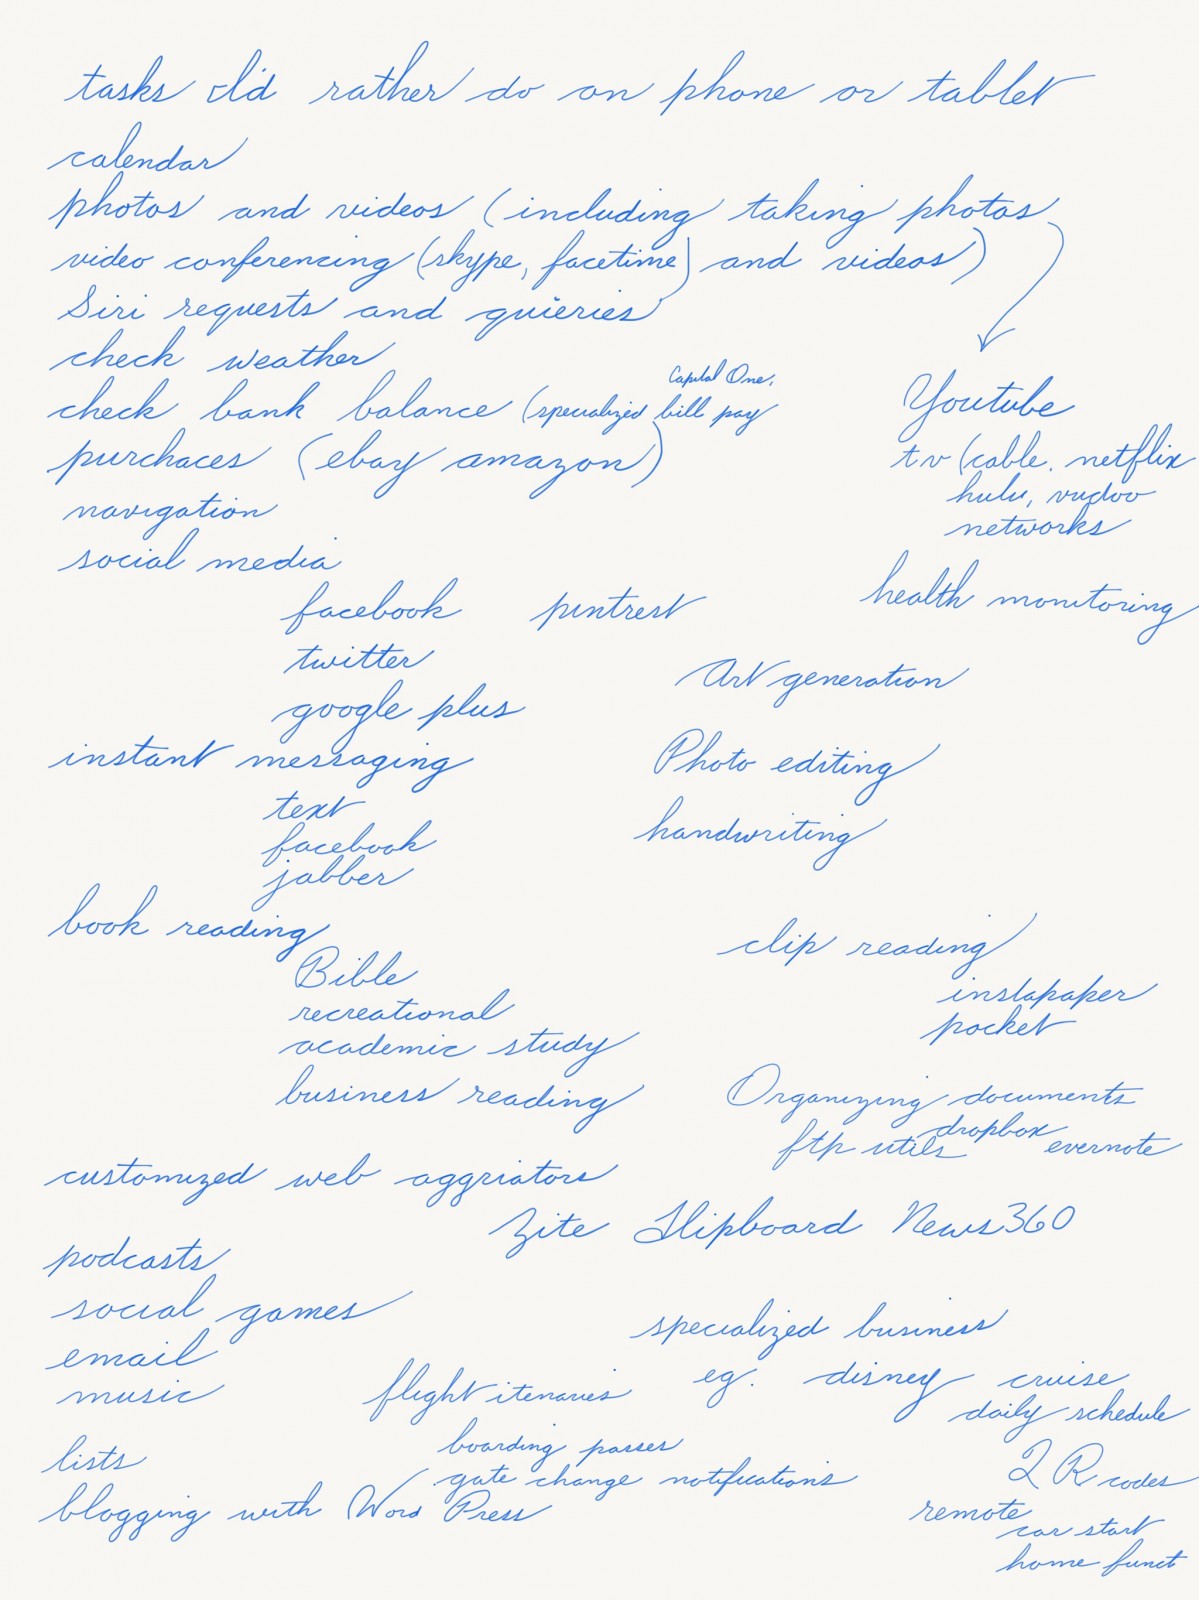 tasks I'd rather do on phone or tablet
calendar
photos and videos (including taking photos
video conferencing (skype, facetime) and videos)
Siri requests and quieries
check weather
check bank balance (specialized bill pay
Capital One,
purchaces (ebay amazon)
navigation
social media
facebook
twitter
google plus
pintrest
instant messaging
text
facebook
jabber
book reading
Bible
recreational
academic study
business reading
customized web aggriators
Zite Flipboard News360
podcasts
social games
email
music
lists
blogging with Word Press
Youtube
tv (cable. netflix
hulu, vudoo
networks
health monitoring
Art generation
Photo editing
handwriting
clip reading
instapaper
pocket
Organizing documents
dropbox
ftp utils evernote
specialized business
eg. disney cruise
daily schedule
flight itenaries
boarding passes
gate change notifications
QR codes
remote
car start
home funct